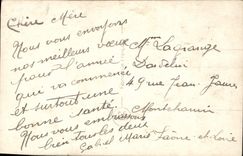 Chère Mère
Nous vous envoyons
nos meilleurs vœux
pour l'année
qui va commencer
et surtout une
bonne santé.
Nous vous embrassons
bien tous les deux
Gabriel Marie
Mme Lagrange
49 rue Jean Jaurès
Montchanin
Saône et Loire